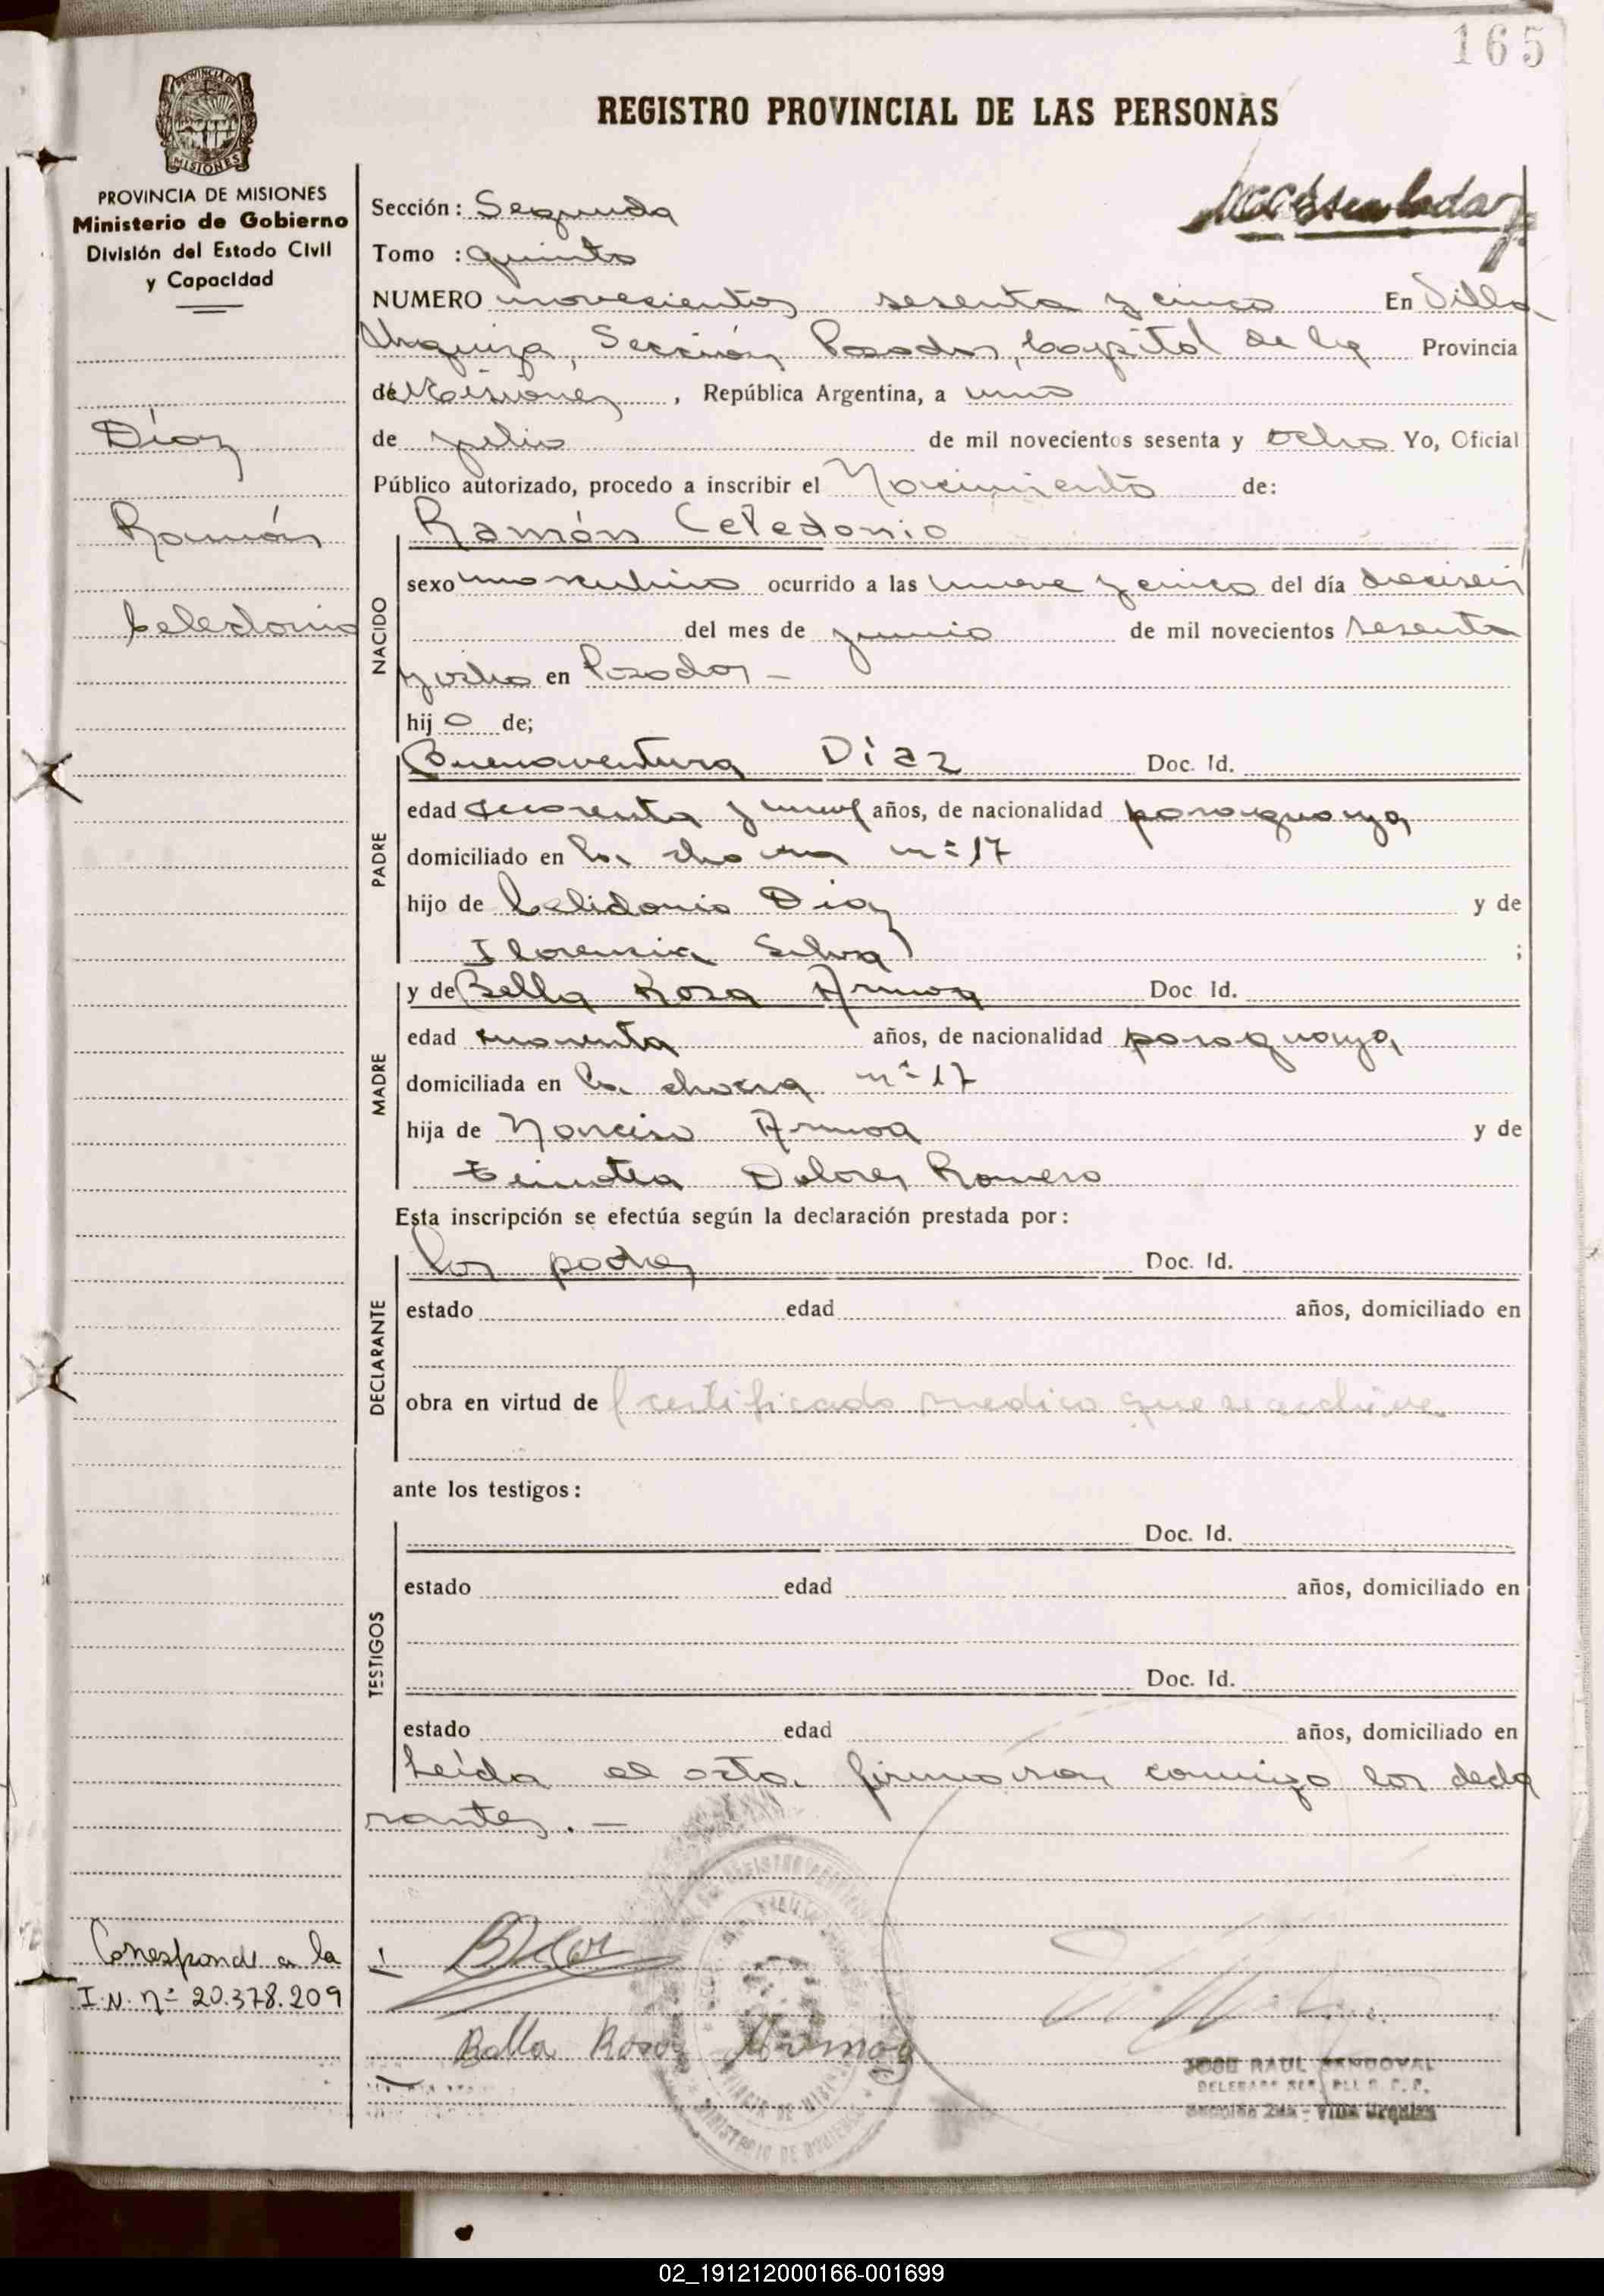 165
REGISTRO PROVINCIAL DE LAS PERSONAS
PROVINCIA DE MISIONES
MISIONES
PROVINCIA DE MISIONES
Ministerio de Gobierno
División del Estado Civil
y Capacidad
Díaz
Ramón
Celedonio
Corresponde a la
I.N. nº 20.378.209
Sección: Segunda
Tomo : quinto
NUMERO novecientos sesenta y cinco En Villa
Urquiza, Sección Posadas, Capital de la Provincia
de Misiones, República Argentina, a uno
de julio de mil novecientos sesenta y ocho Yo, Oficial
Público autorizado, procedo a inscribir el Nacimiento de:
NACIDO
Ramón Celedonio
sexo masculino ocurrido a las nueve y cinco del día dieciseis
del mes de junio de mil novecientos sesenta
y ocho en Posadas -
hij o de;
PADRE
Buenaventura Díaz Doc. Id.
edad cuarenta y nueve años, de nacionalidad paraguaya
domiciliado en la chacra nº 17
hijo de Celidonio Diaz y de
Florencia Silva ;
MADRE
y de Bella Rosa Armoa Doc. Id.
edad cuarenta años, de nacionalidad paraguaya
domiciliada en la chacra nº 17
hija de Narciso Armoa y de
Dolores Romero
Esta inscripción se efectúa según la declaración prestada por:
DECLARANTE
los padres Doc. Id.
estado edad años, domiciliado en
obra en virtud de certificado medico que se archiva
ante los testigos:
TESTIGOS
Doc. Id.
estado edad años, domiciliado en
Doc. Id.
estado edad años, domiciliado en
Leída el acta, firmaron conmigo los decla
rantes. -
Bella Rosa Armoa
MINISTERIO DE GOBIERNO
JOSE RAUL SANDOVAL
Villa Urquiza
02_191212000166-001699